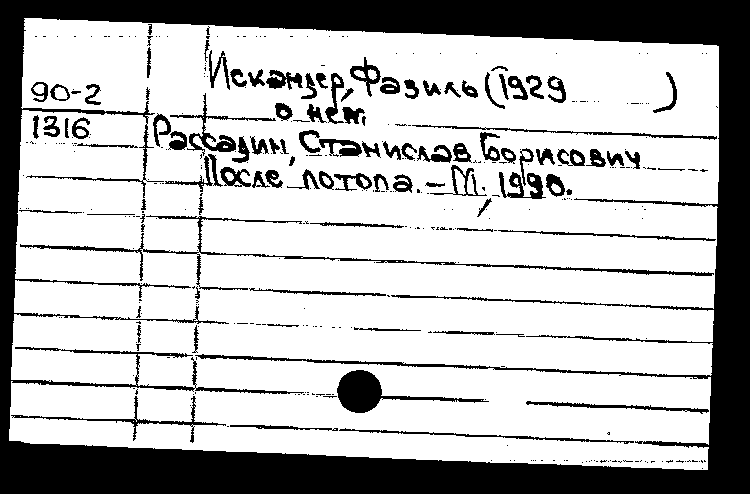 90-2 Искандер, Фазиль (1929 )
о нем
1316 Рассадин, Станислав Борисович
После потопа. – М., 1990.